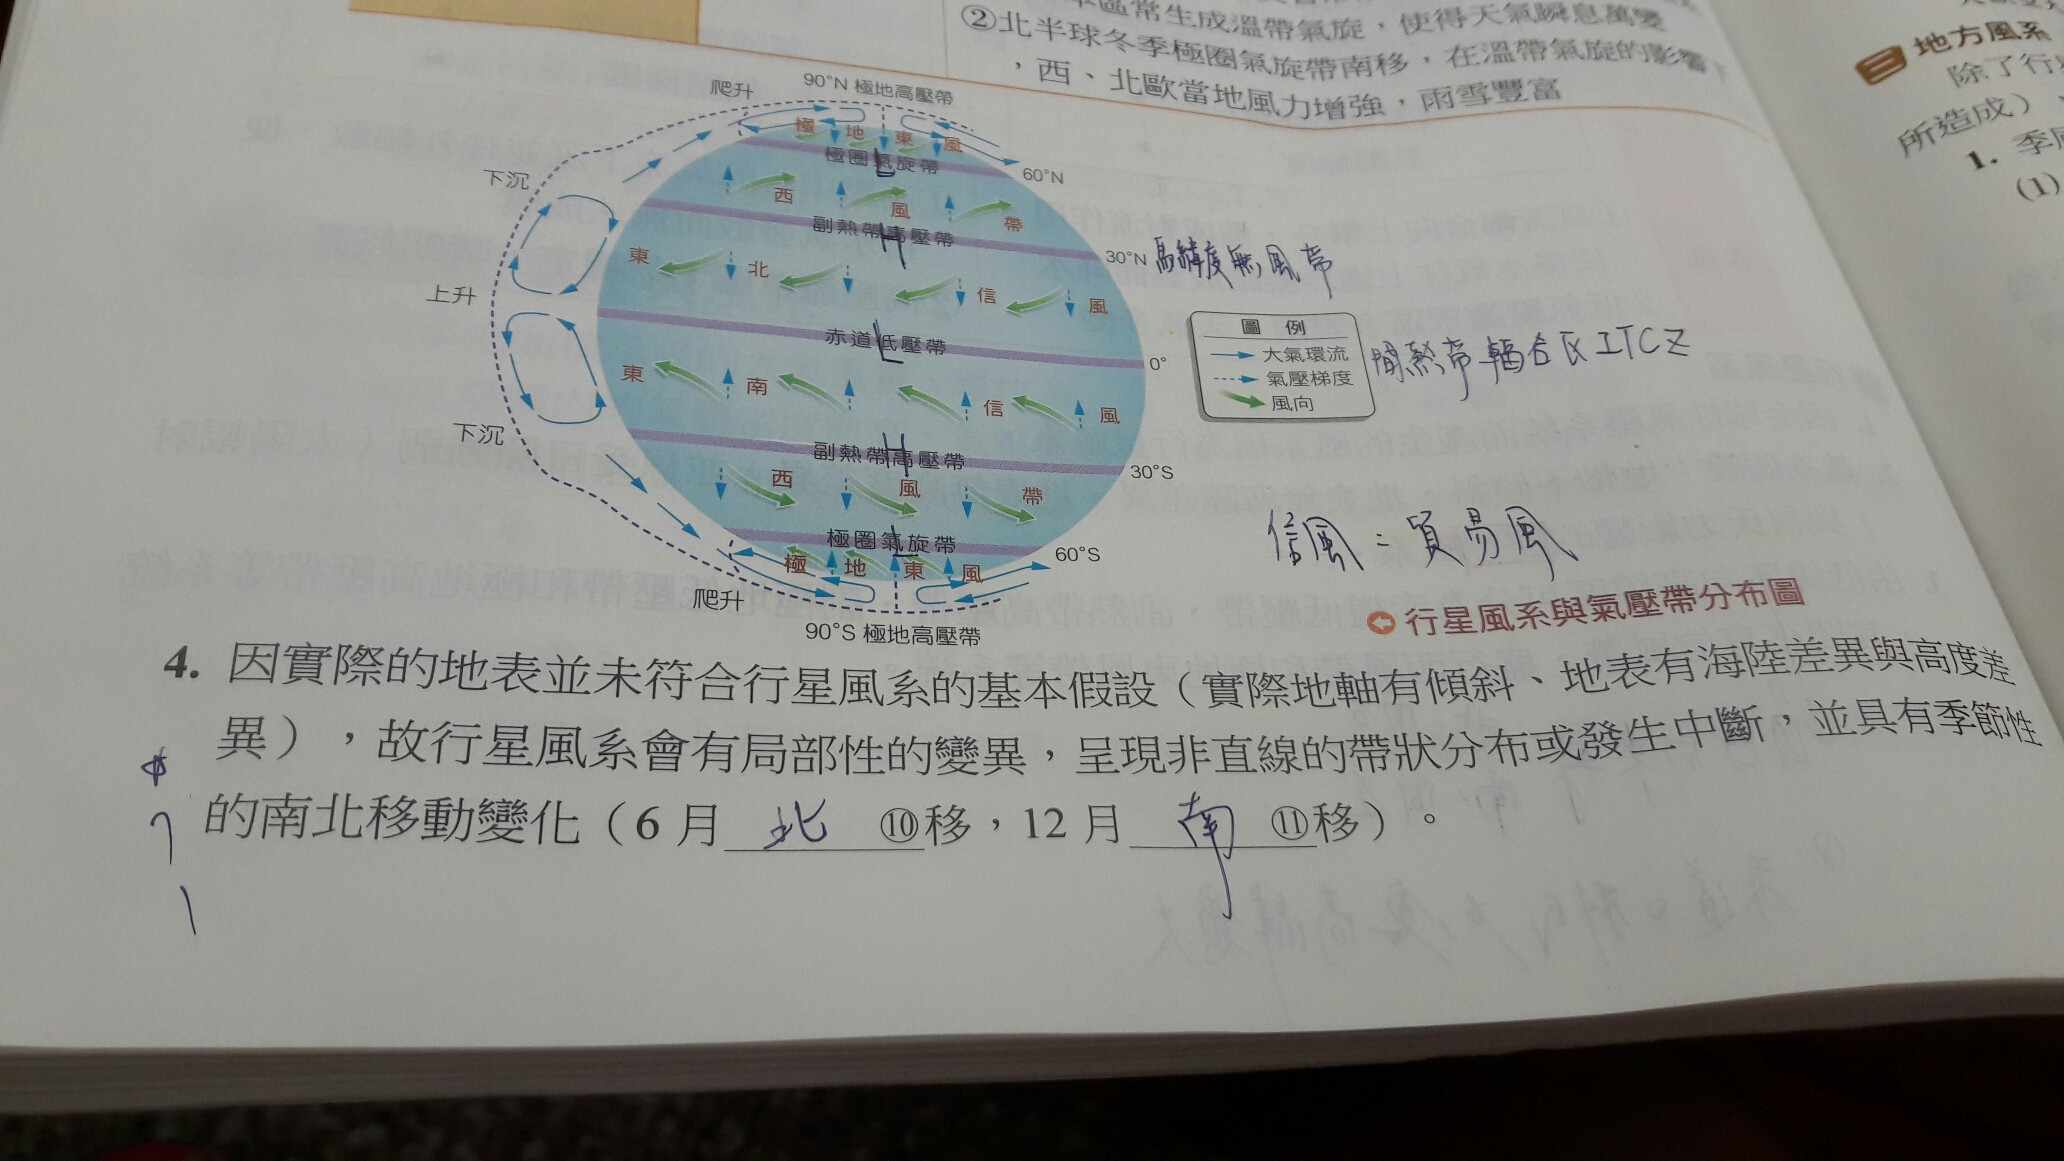 區常生成溫帶氣旋，使得天氣瞬息萬變
②北半球冬季極圈氣旋帶南移，在溫帶氣旋的影響下
，西、北歐當地風力增強，雨雪豐富
三 地方風系
除了行
所造成）
1. 季
(1)
90°N 極地高壓帶
爬升
極地東風
極圈氣旋帶
L
60°N
下沉
西風帶
副熱帶高壓帶
H
30°N 高緯度無風帶
東北信風
上升
赤道低壓帶
L
0°
圖例
大氣環流
氣壓梯度
風向
間熱帶輻合區ITCZ
東南信風
下沉
副熱帶高壓帶
H
30°S
西風帶
極圈氣旋帶
L
60°S
極地東風
爬升
90°S 極地高壓帶
信風=貿易風
行星風系與氣壓帶分布圖
4. 因實際的地表並未符合行星風系的基本假設（實際地軸有傾斜、地表有海陸差異與高度差
異），故行星風系會有局部性的變異，呈現非直線的帶狀分布或發生中斷，並具有季節性
的南北移動變化（6 月 北 ⑩移，12 月 南 ⑪移）。